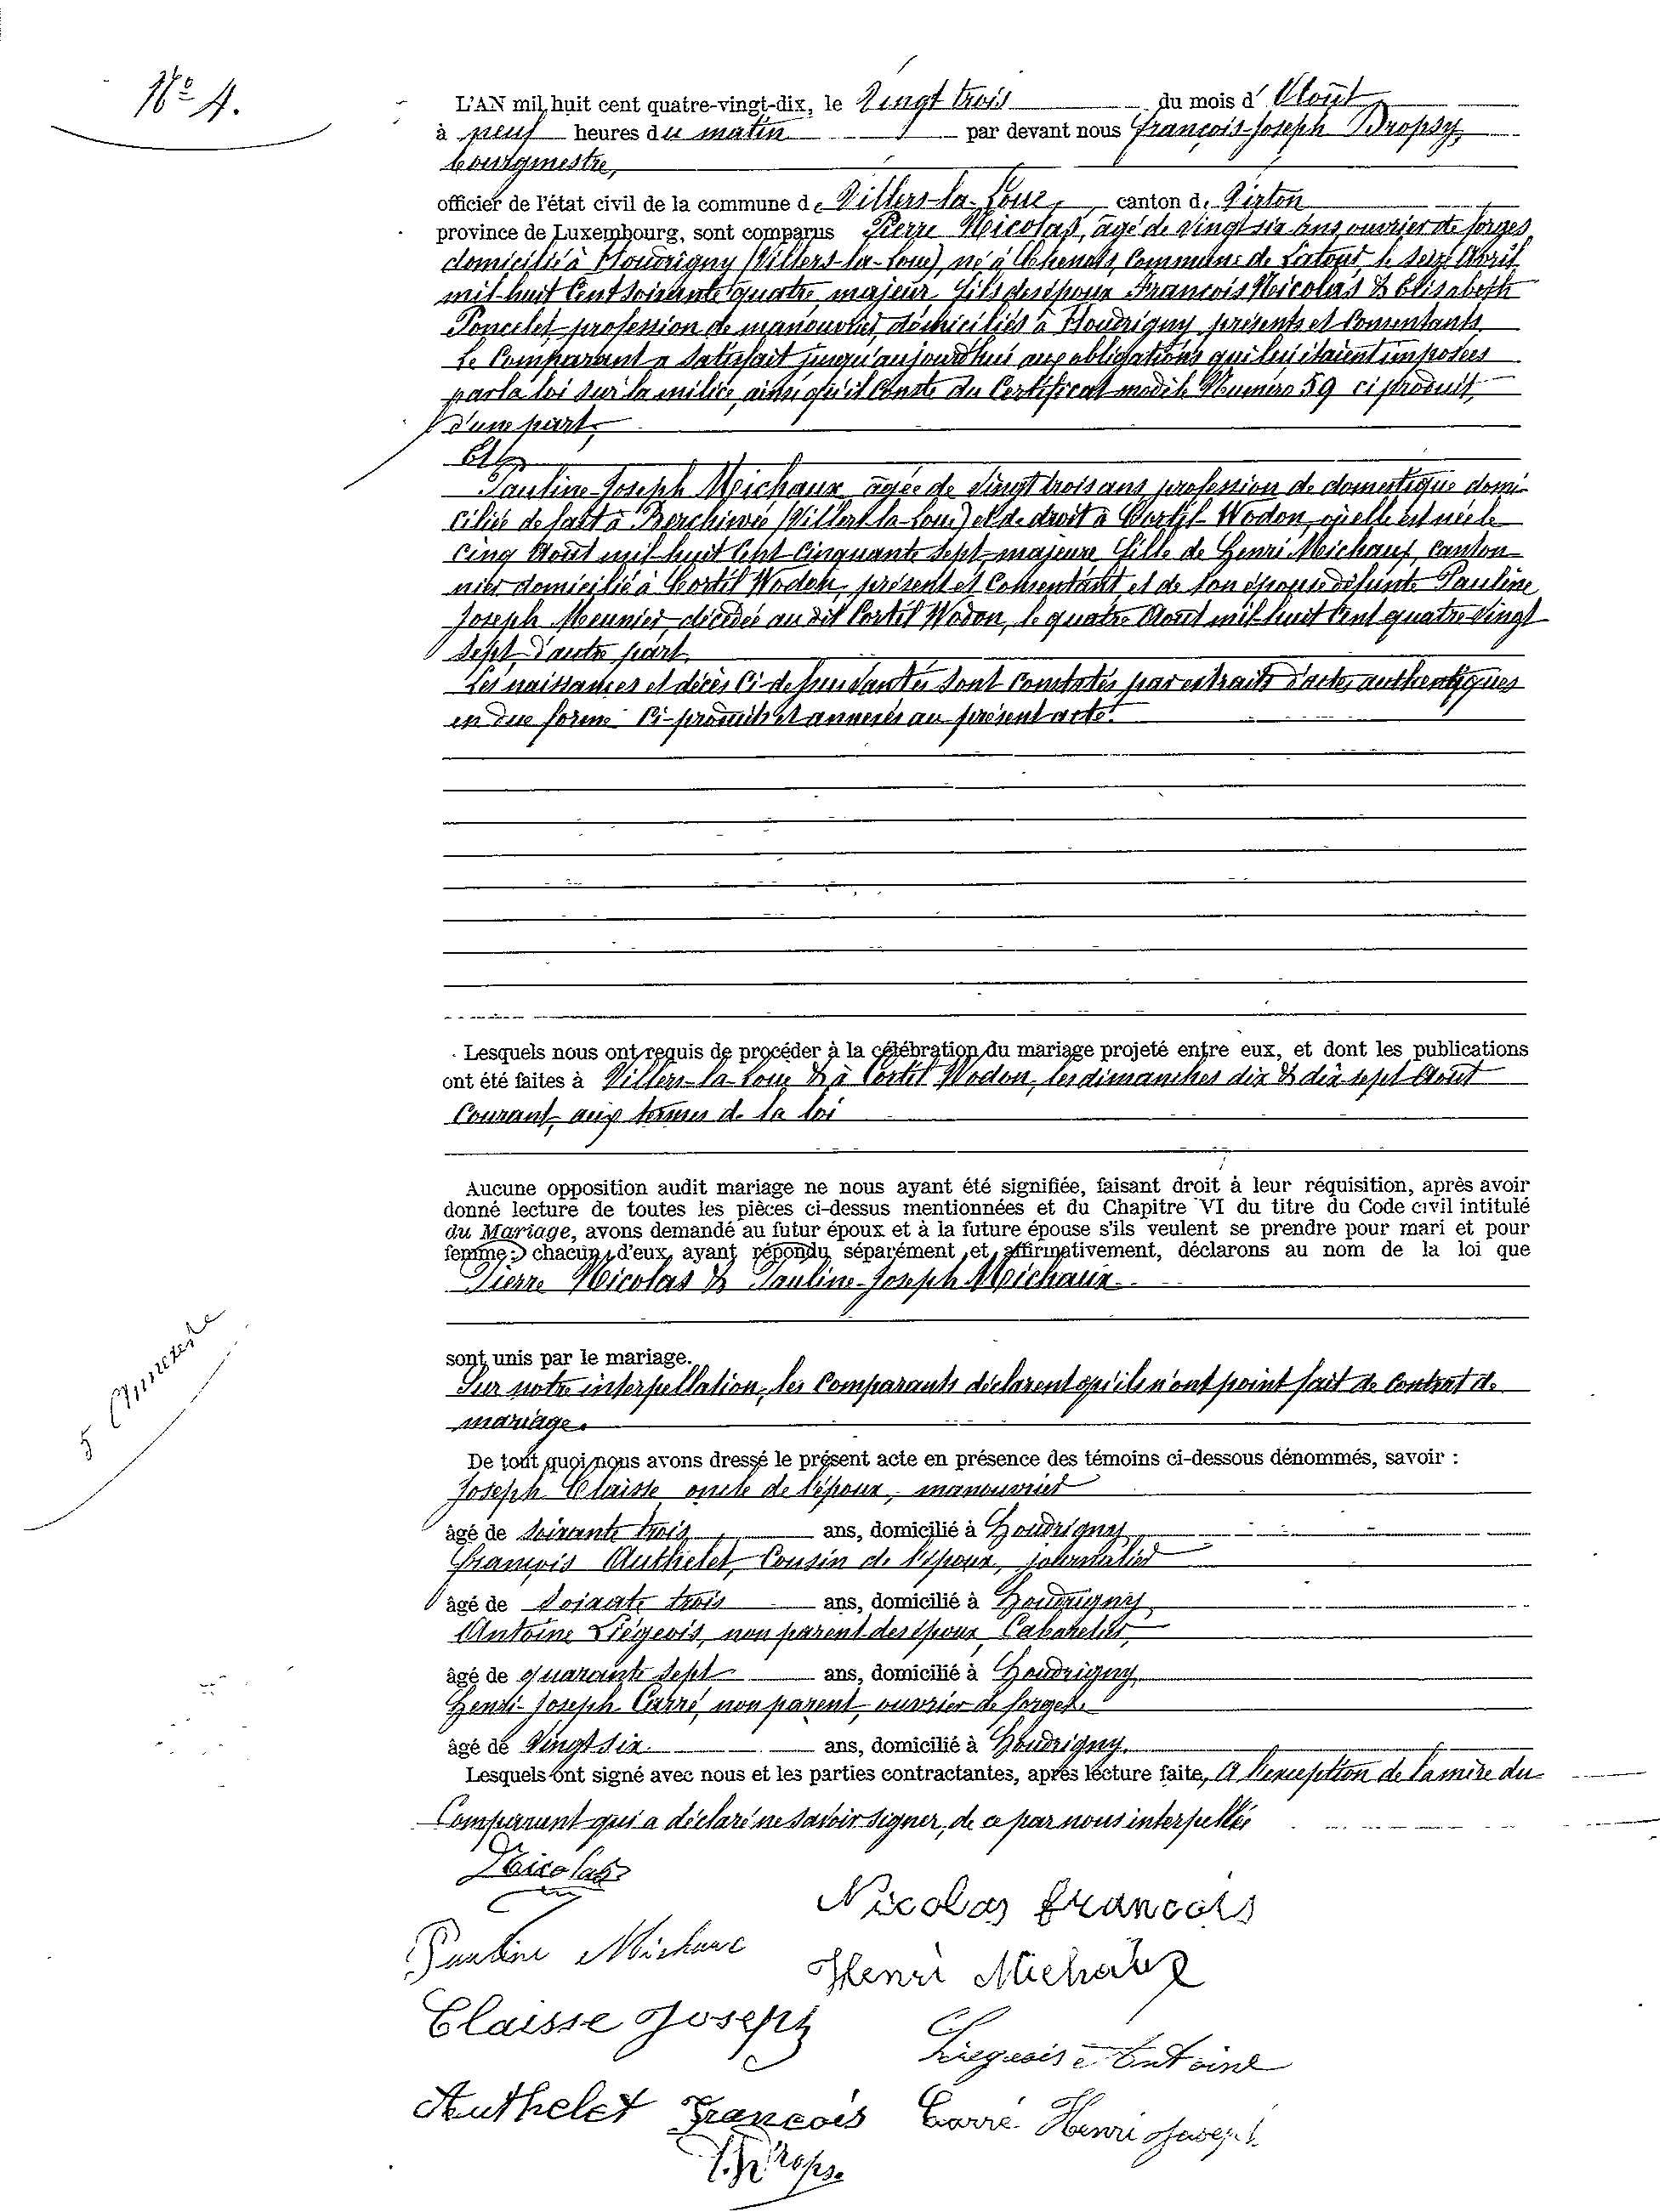 No 4.
L'AN mil huit cent quatre-vingt-dix, le Vingt trois du mois d'Août
à neuf heures du matin par devant nous François-Joseph Dropsy,
bourgmestre,
officier de l'état civil de la commune de Villers-la-Loue, canton de Virton
province de Luxembourg, sont comparus Pierre Nicolas, âgé de vingt six ans, ouvrier de forges,
domicilié à Houdrigny (Villers-la-Loue), né à Chenois, Commune de Latour, le seize Avril
mil-huit Cent soixante quatre, majeur, fils des époux François Nicolas & Elisabeth
Poncelet, profession de manouvrier, domiciliés à Houdrigny, présents et Consentants,
Le Comparant a satisfait jusqu'aujourd'hui aux obligations qui lui étaient imposées
par la loi sur la milice, ainsi qu'il Conste du Certificat modèle Numéro 59 ci produit,
d'une part,
Et
Pauline-Joseph Michaux, âgée de vingt trois ans, profession de domestique, domi-
ciliée de fait à Berchiwée (Villers-la-Loue) et de droit à Cortil-Wodon, où elle est née le
cinq Août mil-huit Cent Cinquante Sept, majeure, fille de Henri Michaux, canton-
nier, domicilié à Cortil Wodon, présent et Consentant, et de son épouse défunte Pauline
Joseph Meunier, décédée au dit Cortil Wodon, le quatre Août mil-huit Cent quatre-vingt
sept, d'autre part,
Les naissances et décès Ci-dessus vantés sont constatés par extraits d'actes authentiques
en due forme Ci-produits et annexés au présent acte.
Lesquels nous ont requis de procéder à la célébration du mariage projeté entre eux, et dont les publications
ont été faites à Villers-la-Loue & à Cortil Wodon, les dimanches dix & dix sept Août
Courant, aux termes de la loi
Aucune opposition audit mariage ne nous ayant été signifiée, faisant droit à leur réquisition, après avoir
donné lecture de toutes les pièces ci-dessus mentionnées et du Chapitre VI du titre du Code civil intitulé
du Mariage, avons demandé au futur époux et à la future épouse s'ils veulent se prendre pour mari et pour
femme; chacun d'eux ayant répondu séparément et affirmativement, déclarons au nom de la loi que
Pierre Nicolas & Pauline-Joseph Michaux
sont unis par le mariage.
Sur notre interpellation, les Comparants déclarent qu'ils n'ont point fait de Contrat de
mariage.
5 Annexes
De tout quoi nous avons dressé le présent acte en présence des témoins ci-dessous dénommés, savoir :
Joseph Claisse, oncle de l'époux, manouvrier
âgé de soixante trois ans, domicilié à Houdrigny
François Authelet, Cousin de l'époux, journalier
âgé de soixante trois ans, domicilié à Houdrigny
Antoine Liégeois, non parent des époux, Cabaretier
âgé de quarante sept ans, domicilié à Houdrigny
Henri-Joseph Carré, non parent, ouvrier de forges.
âgé de vingt six ans, domicilié à Houdrigny.
Lesquels ont signé avec nous et les parties contractantes, après lecture faite, à l'exception de la mère du
Comparant qui a déclaré ne savoir signer, de ce par nous interpellée
Nicolas
Nicolas francois
Pauline Michaux
Henri Michaux
Claisse Joseph
Liegeois Antoine
Authelet François
Carré Henri Joseph